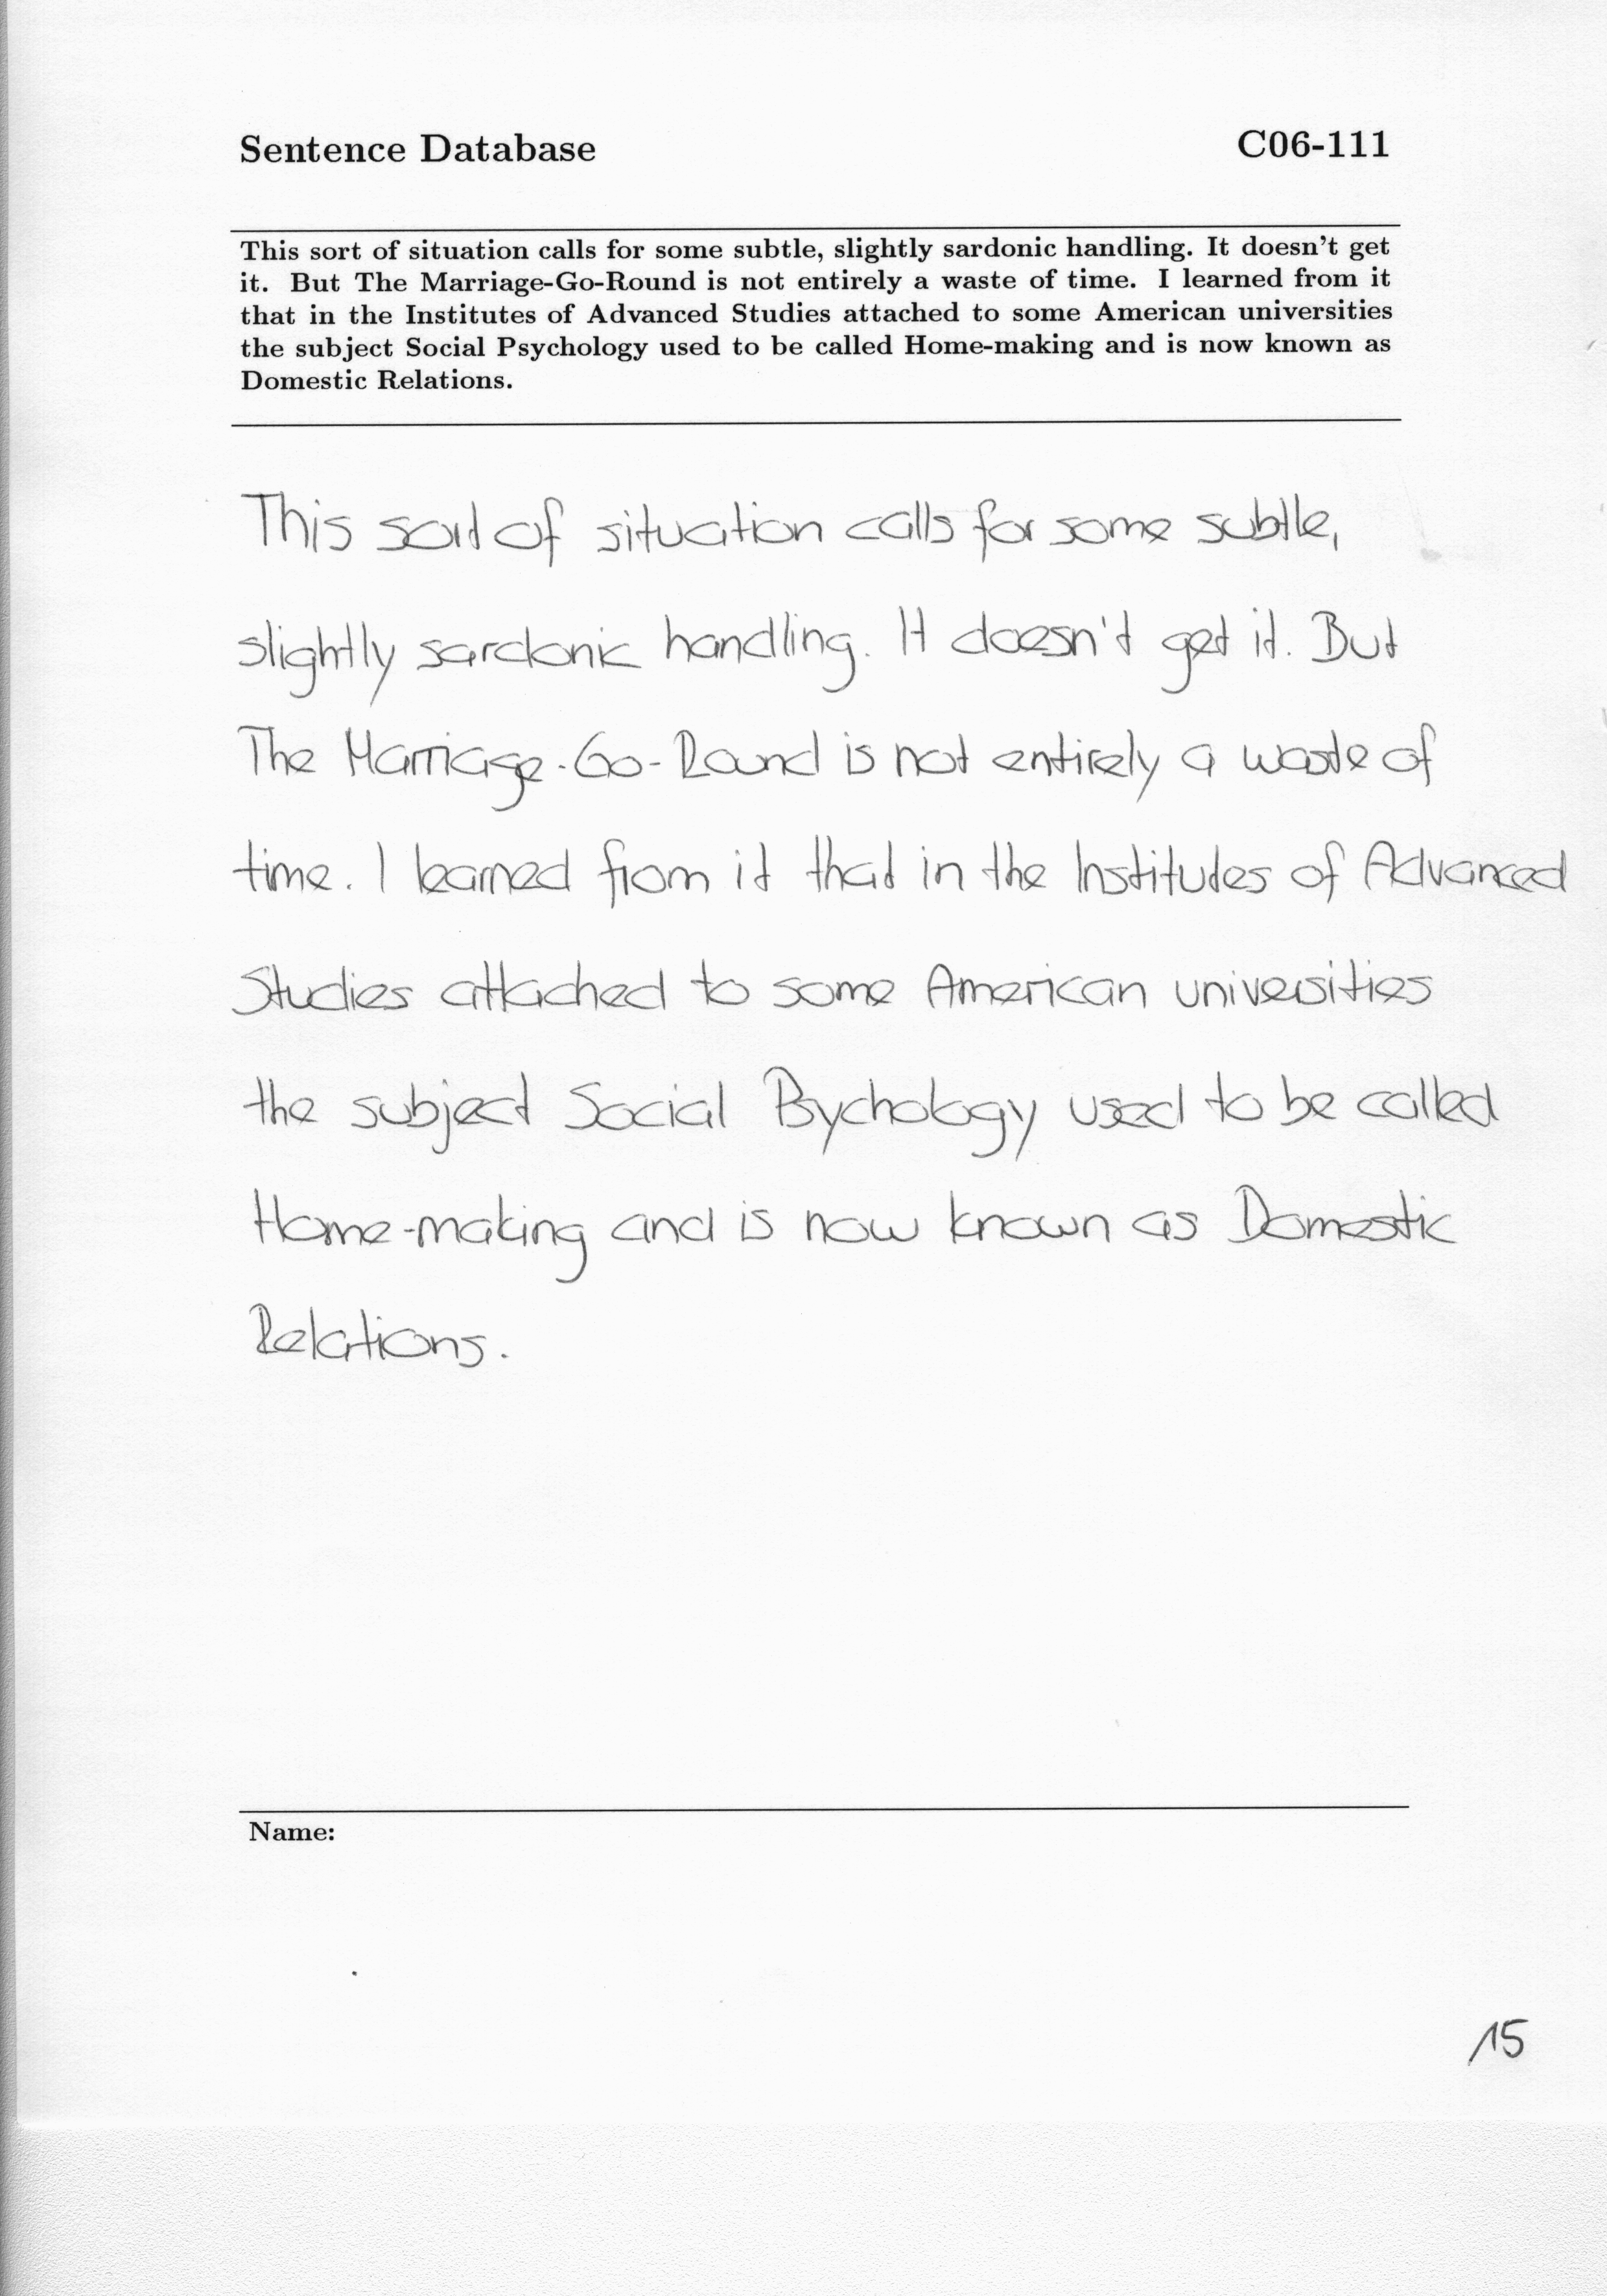 Sentence Database C06-111
This sort of situation calls for some subtle, slightly sardonic handling. It doesn't get
it. But The Marriage-Go-Round is not entirely a waste of time. I learned from it
that in the Institutes of Advanced Studies attached to some American universities
the subject Social Psychology used to be called Home-making and is now known as
Domestic Relations.
This sort of situation calls for some subtle,
slightly sardonic handling. It doesn't get it. But
The Marriage-Go-Round is not entirely a waste of
time. I learned from it that in the Institutes of Advanced
Studies attached to some American universities
the subject Social Psychology used to be called
Home-making and is now known as Domestic
Relations.
Name:
15